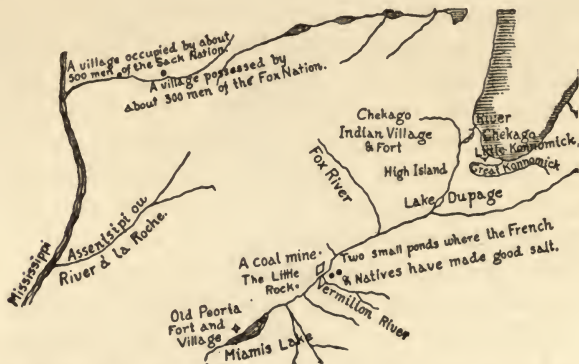 A village occupied by about
500 men of the Sack Nation.
A village possessed by
about 300 men of the Fox Nation.
Chekago
Indian Village
& Fort
River
Chekago
Little Konnomick
Great Konnomick
High Island
Fox River
Lake Dupage
Assentsipi ou
River d la Roche.
Mississippi
A coal mine.
The Little
Rock.
Two small ponds where the French
& Natives have made good salt.
Vermilion River
Old Peoria
Fort and
Village
Miamis Lake